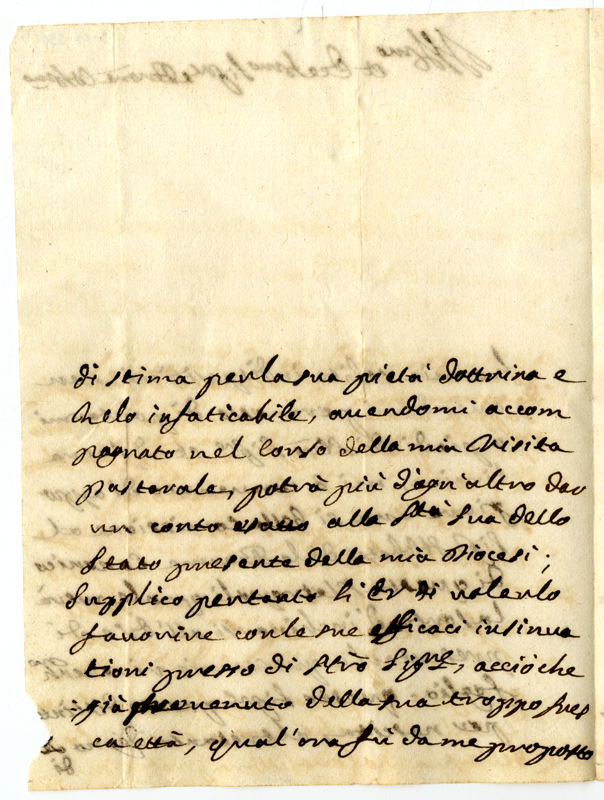 di stima per la sua pietà dottrina e
Zelo infaticabile, auendomi accom
pagnato nel Corso della mia Visita
Pastorale, potrà più d'ogn'altro dar
un conto esatto alla Stà Sua dello
Stato presente della mia Diocesi;
Supplico pertanto li di uolerlo
fauorire con le sue efficaci insinua
tioni presso di Sigre, acciò che
già preuenuto della sua troppo fres
ca età, qual'ora fù da me proposto